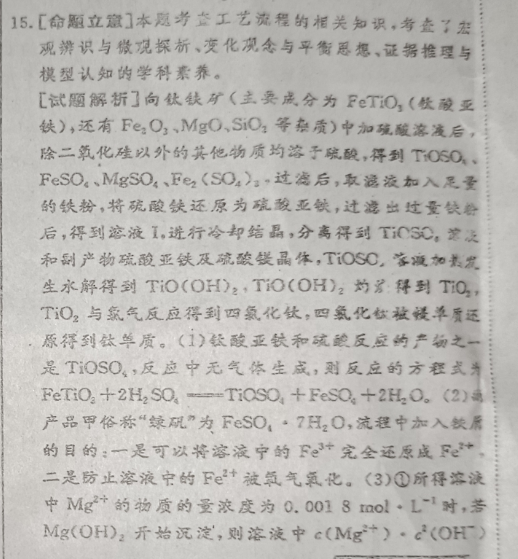 15.[命题立意]本题考查工艺流程的相关知识,考查了宏
观辨识与微观探析、变化观念与平衡思想、证据推理与
模型认知的学科素养。
[试题解析]向钛铁矿(主要成分为 FeTiO₃(钛酸亚
铁),还有 Fe₂O₃、MgO、SiO₂ 等杂质)中加硫酸溶液后,
除二氧化硅以外的其他物质均溶于硫酸,得到 TiOSO₄、
FeSO₄、MgSO₄、Fe₂(SO₄)₃。过滤后,取滤液加入足量
的铁粉,将硫酸铁还原为硫酸亚铁,过滤出过量铁粉
后,得到溶液 I,进行冷却结晶,分离得到 TiOSO₄ 溶液
和副产物硫酸亚铁及硫酸镁晶体,TiOSO₄ 溶液加热发
生水解得到 TiO(OH)₂,TiO(OH)₂ 灼烧得到 TiO₂,
TiO₂ 与氯气反应得到四氯化钛,四氯化钛被镁单质还
原得到钛单质。(1)钛酸亚铁和硫酸反应的产物之一
是 TiOSO₄,反应中无气体生成,则反应的方程式为
FeTiO₃+2H₂SO₄══TiOSO₄+FeSO₄+2H₂O。(2)
产品甲俗称“绿矾”为 FeSO₄·7H₂O,流程中加入铁屑
的目的:一是可以将溶液中的 Fe³⁺ 完全还原成 Fe²⁺,
二是防止溶液中的 Fe²⁺ 被氧气氧化。(3)①所得溶液
中 Mg²⁺ 的物质的量浓度为 0.001 8 mol·L⁻¹ 时,若
Mg(OH)₂ 开始沉淀,则溶液中 c(Mg²⁺)·c²(OH⁻)